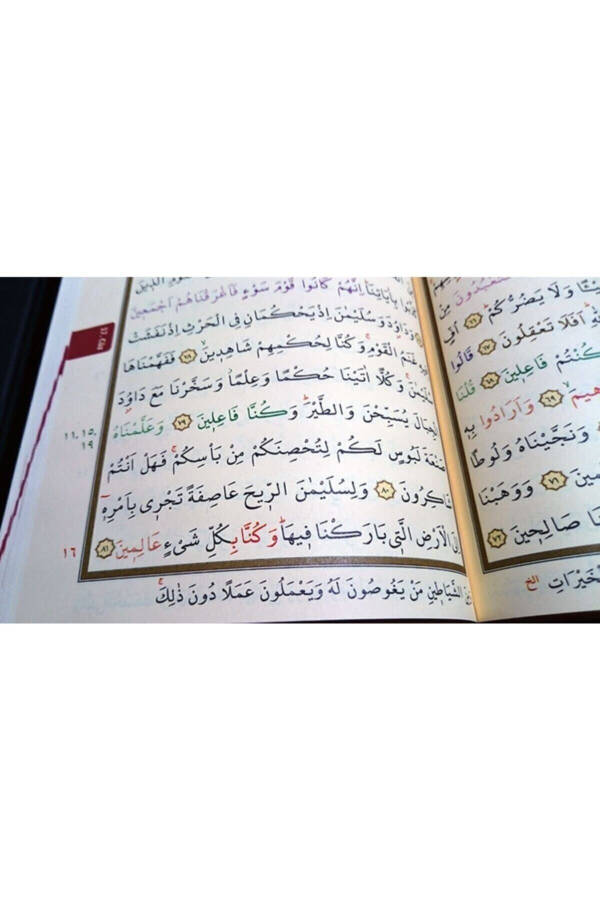 تَعْبُدُونَ
وَلَا يَضُرُّكُمْ ٦٦ اُفٍّ
اَفَلَا تَعْقِلُونَ ٦٧ قَالُوا
كُنْتُمْ فَاعِلِينَ ٦٨ قُلْنَا
٦٩ وَاَرَادُوا بِهِ
وَنَجَّيْنَاهُ وَلُوطًا
٧١ وَوَهَبْنَا
صَالِحِينَ ٧٢
الخ
بِاٰيَاتِنَا اِنَّهُمْ كَانُوا قَوْمَ سَوْءٍ فَاَغْرَقْنَاهُمْ اَجْمَعِينَ
وَدَاوُدَ وَسُلَيْمٰنَ اِذْ يَحْكُمَانِ فِى الْحَرْثِ اِذْ نَفَشَتْ
غَنَمُ الْقَوْمِ وَكُنَّا لِحُكْمِهِمْ شَاهِدِينَ ٧٨ فَفَهَّمْنَاهَا
وَكُلًّا اٰتَيْنَا حُكْمًا وَعِلْمًا وَسَخَّرْنَا مَعَ دَاوُدَ
يُسَبِّحْنَ وَالطَّيْرَ وَكُنَّا فَاعِلِينَ ٧٩ وَعَلَّمْنَاهُ
صَنْعَةَ لَبُوسٍ لَكُمْ لِتُحْصِنَكُمْ مِنْ بَأْسِكُمْ فَهَلْ اَنْتُمْ
شَاكِرُونَ ٨٠ وَلِسُلَيْمٰنَ الرِّيحَ عَاصِفَةً تَجْرِى بِاَمْرِهِ
اِلَى الْاَرْضِ الَّتِى بَارَكْنَا فِيهَا وَكُنَّا بِكُلِّ شَىْءٍ عَالِمِينَ ٨١
الشَّيَاطِينِ مَنْ يَغُوصُونَ لَهُ وَيَعْمَلُونَ عَمَلًا دُونَ ذٰلِكَ
١٦